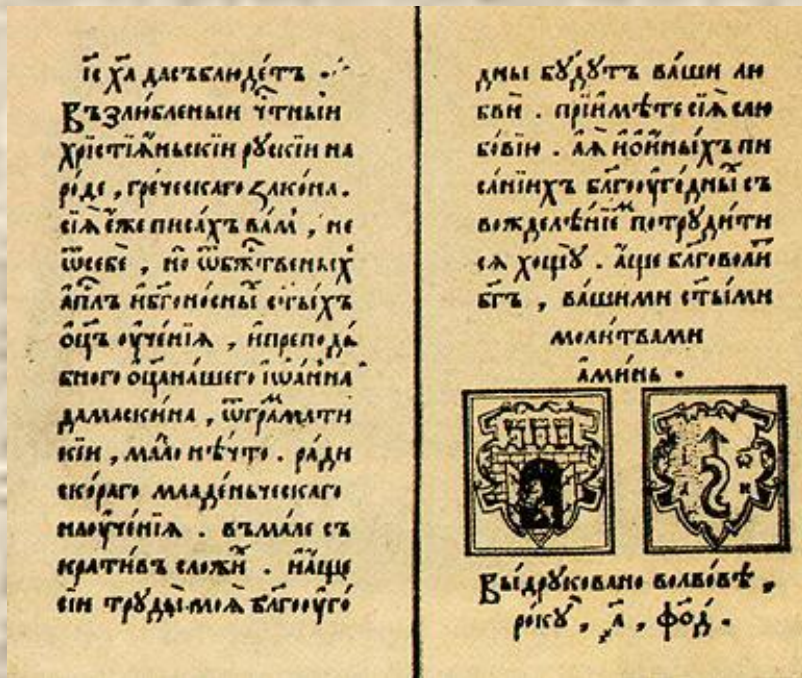 і҃с х҃а да съблюдéтъ ·:·
Възлю́бленыи ч҃тныи
хрїстїа́ньскїи рускїи на
рóде , грéческаго закóна .
сїѧ̀ є́же писáхъ вáм̾ , не
ѿ себѐ , но ѿ бж҃твеныⷯ
а҆п҃лъ и҆ бг҃онóсныⷯ ст҃ы́хъ
ѻ҆ц҃ъ оу҆чéнїѧ , и҆ преподо́
бного ѻ҆ц҃а нáшего і҆ѡáнна
дамаскѝна , ѿ грáмати
кїи , мáло нѣ́что . рáди
скóраго младéньческаго
наоу҆чéнїѧ . въмáле съ
кратѝвъ сложѝⷯ . и҆ áще
сїи труды̀ моѧ̀ бл҃гооу҆гó
дны бýдутъ вáши лю
бвѝ . прїимѣ́те сїѧ̀ слю
бóвїю . а҆ ѧ҆̀ и҆ ѻ҆ и҆́ныхъ пи
сáнїихъ бл҃гооу҆гóдныⷯ съ
вожделѣ́нїеⷨ потрудѝти
сѧ хощꙋ̀ . áще бл҃говолѝⷮ
бг҃ъ , вáшими ст҃ы́ми
моли́твами
а҆ми́нь .
І Ѡ
А Н
Вы́друковано волвóвѣ ,
рóкꙋ , ҂а҃ , фо҃д .